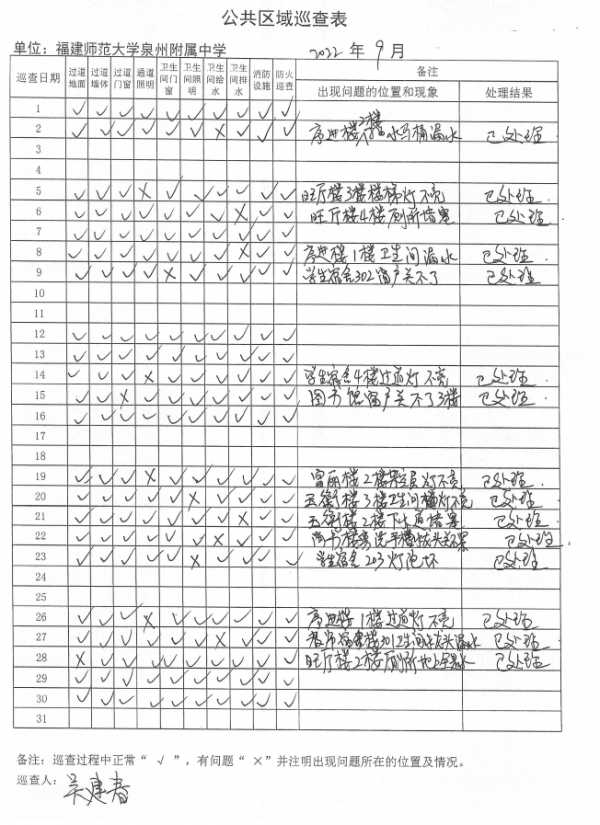 公共区域巡查表
单位：福建师范大学泉州附属中学 2022年9月
巡查日期 过道地面 过道墙体 过道门窗 通道照明 卫生间门窗 卫生间照明 卫生间给水 卫生间排水 消防设施 防火巡查 备注
出现问题的位置和现象 处理结果
1 √ √ √ √ √ √ √ √ √ √
2 √ √ √ √ √ √ × √ √ √ 水马桶漏水 已处理
3
4
5 √ √ √ × √ √ √ √ √ √ 旺厅楼3楼楼梯灯不亮 已处理
6 √ √ √ √ √ √ √ × √ √ 旺厅楼4楼厕所堵塞 已处理
7 √ √ √ √ √ √ √ √ √ √
8 √ √ √ √ √ √ √ × √ √ 楼1楼卫生间漏水 已处理
9 √ √ √ √ × √ √ √ √ √ 学生宿舍302窗户关不了 已处理
10
11
12 √ √ √ √ √ √ √ √ √ √
13 √ √ √ √ √ √ √ √ √ √
14 √ √ √ × √ √ √ √ √ √ 学生宿舍4楼过道灯不亮 已处理
15 √ √ × √ √ √ √ √ √ √ 图书馆窗户关不了3楼 已处理
16 √ √ √ √ √ √ √ √ √ √
17
18
19 √ √ √ × √ √ √ √ √ √ 富丽楼2楼 灯不亮 已处理
20 √ √ √ √ √ × √ √ √ √ 楼3楼卫生间 灯不亮 已处理
21 √ √ √ √ √ √ √ × √ √ 楼2楼下水道堵塞 已处理
22 √ √ √ √ √ √ × √ √ √ 图书楼 洗手 已处理
23 √ √ √ √ √ × √ √ √ √ 学生宿舍203灯泡坏 已处理
24
25
26 √ √ √ × √ √ √ √ √ √ 楼1楼过道灯不亮 已处理
27 √ √ √ √ √ √ × √ √ √ 楼301卫生间水龙头漏水 已处理
28 × √ √ √ √ √ √ √ √ √ 旺厅楼2楼厕所地 水 已处理
29 √ √ √ √ √ √ √ √ √ √
30 √ √ √ √ √ √ √ √ √ √
31
备注：巡查过程中正常“ √ ”，有问题“ ×”并注明出现问题所在的位置及情况。
巡查人：吴建春